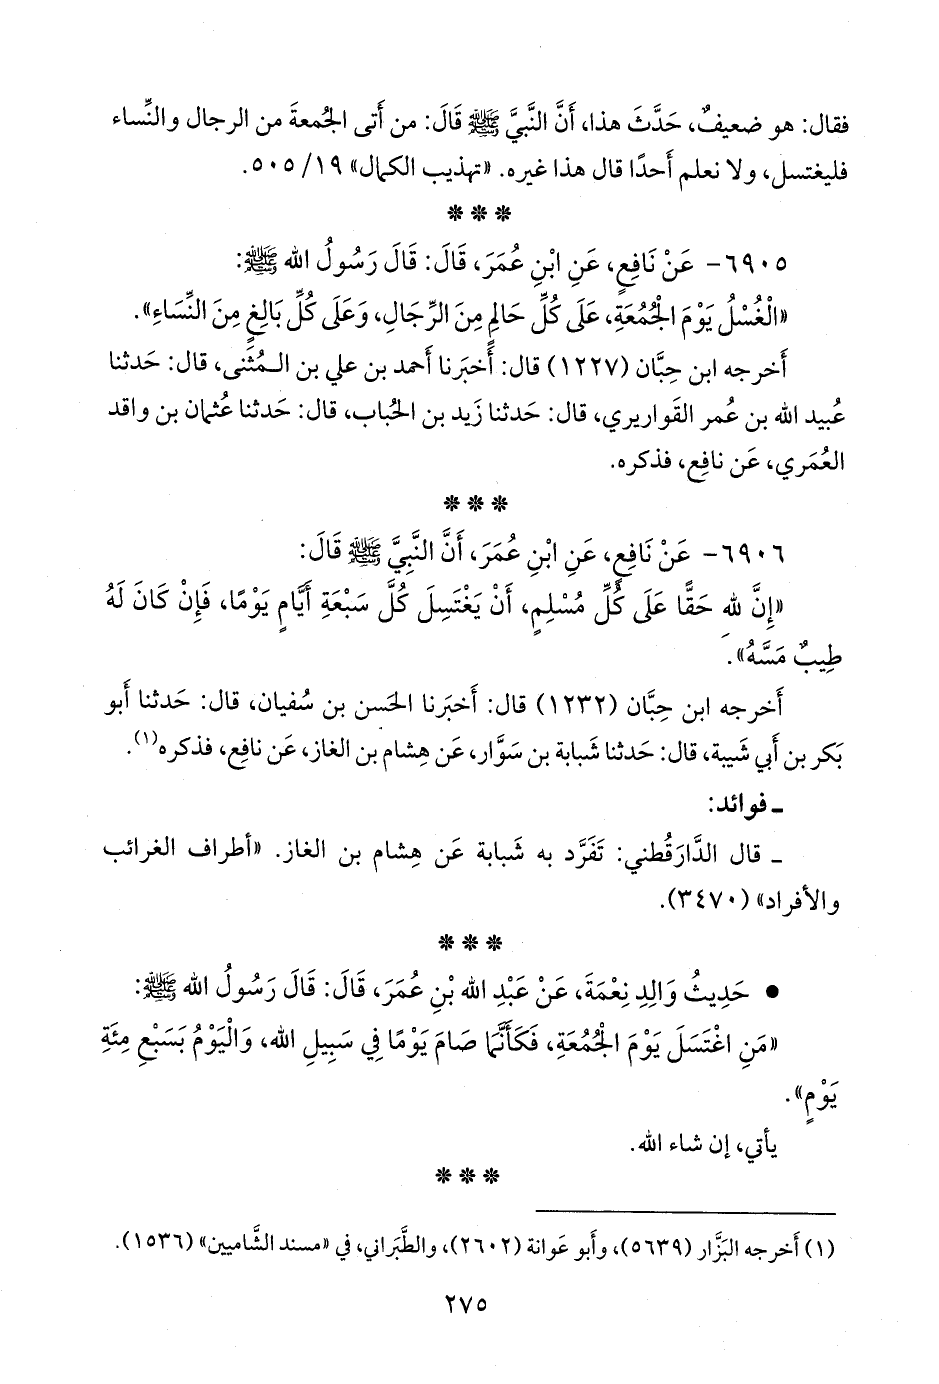 فقال: هو ضعيفٌ، حَدَّثَ هذا، أَنَّ النَّبيَّ ﷺ قَالَ: من أَتى الجُمعةَ من الرجال والنِّساء
فليغتسل، ولا نعلم أَحدًا قال هذا غيره. «تهذيب الكمال» ١٩/ ٥٠٥.
***
٦٩٠٥- عَنْ نَافِعٍ، عَنِ ابْنِ عُمَرَ، قَالَ: قَالَ رَسُولُ الله ﷺ:
«الْغُسْلُ يَوْمَ الْجُمُعَةِ، عَلَى كُلِّ حَالِمٍ مِنَ الرِّجَالِ، وَعَلَى كُلِّ بَالِغٍ مِنَ النِّسَاءِ».
أَخرجه ابن حِبَّان (١٢٢٧) قال: أَخبَرنا أَحمد بن علي بن المُثنى، قال: حَدثنا
عُبيد الله بن عُمر القَواريري، قال: حَدثنا زَيد بن الحُباب، قال: حَدثنا عُثمان بن واقد
العُمَري، عَن نافِع، فذكره.
***
٦٩٠٦- عَنْ نَافِعٍ، عَنِ ابْنِ عُمَرَ، أَنَّ النَّبِيَّ ﷺ قَالَ:
«إِنَّ لله حَقًّا عَلَى كُلِّ مُسْلِمٍ، أَنْ يَغْتَسِلَ كُلَّ سَبْعَةِ أَيَّامٍ يَوْمًا، فَإِنْ كَانَ لَهُ
طِيبٌ مَسَّهُ».
أَخرجه ابن حِبَّان (١٢٣٢) قال: أَخبَرنا الحَسن بن سُفيان، قال: حَدثنا أَبو
بَكر بن أَبي شَيبة، قال: حَدثنا شَبابة بن سَوَّار، عَن هِشام بن الغاز، عَن نافِع، فذكره(١).
ـ فوائد:
ـ قال الدَّارَقُطني: تَفَرَّد به شَبابة عَن هِشام بن الغاز. «أطراف الغرائب
والأفراد» (٣٤٧٠).
***
• حَدِيثُ وَالِدِ نِعْمَةَ، عَنْ عَبْدِ الله بْنِ عُمَرَ، قَالَ: قَالَ رَسُولُ الله ﷺ:
«مَنِ اغْتَسَلَ يَوْمَ الْجُمُعَةِ، فَكَأَنَّمَا صَامَ يَوْمًا فِي سَبِيلِ الله، وَالْيَوْمُ بَسَبْعِ مِئَةِ
يَوْمٍ».
يأتي، إن شاء الله.
***
(١) أَخرجه البَزَّار (٥٦٣٩)، وأَبو عَوانة (٢٦٠٢)، والطَّبَراني، في «مسند الشَّاميين» (١٥٣٦).
٢٧٥